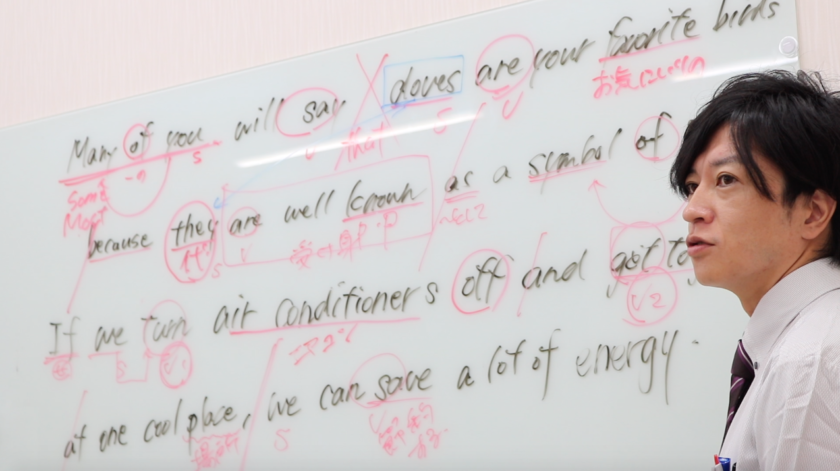 Many of you will say doves are your favorite birds
お気にいりの
Some
Most
that
S
V
because they are well known as a symbol of
代
S
V
受け身 P.P
〜として
If we turn air conditioners off and get to
S
V1
エアコン
V2
at one cool place, we can save a lot of energy.
場所
S